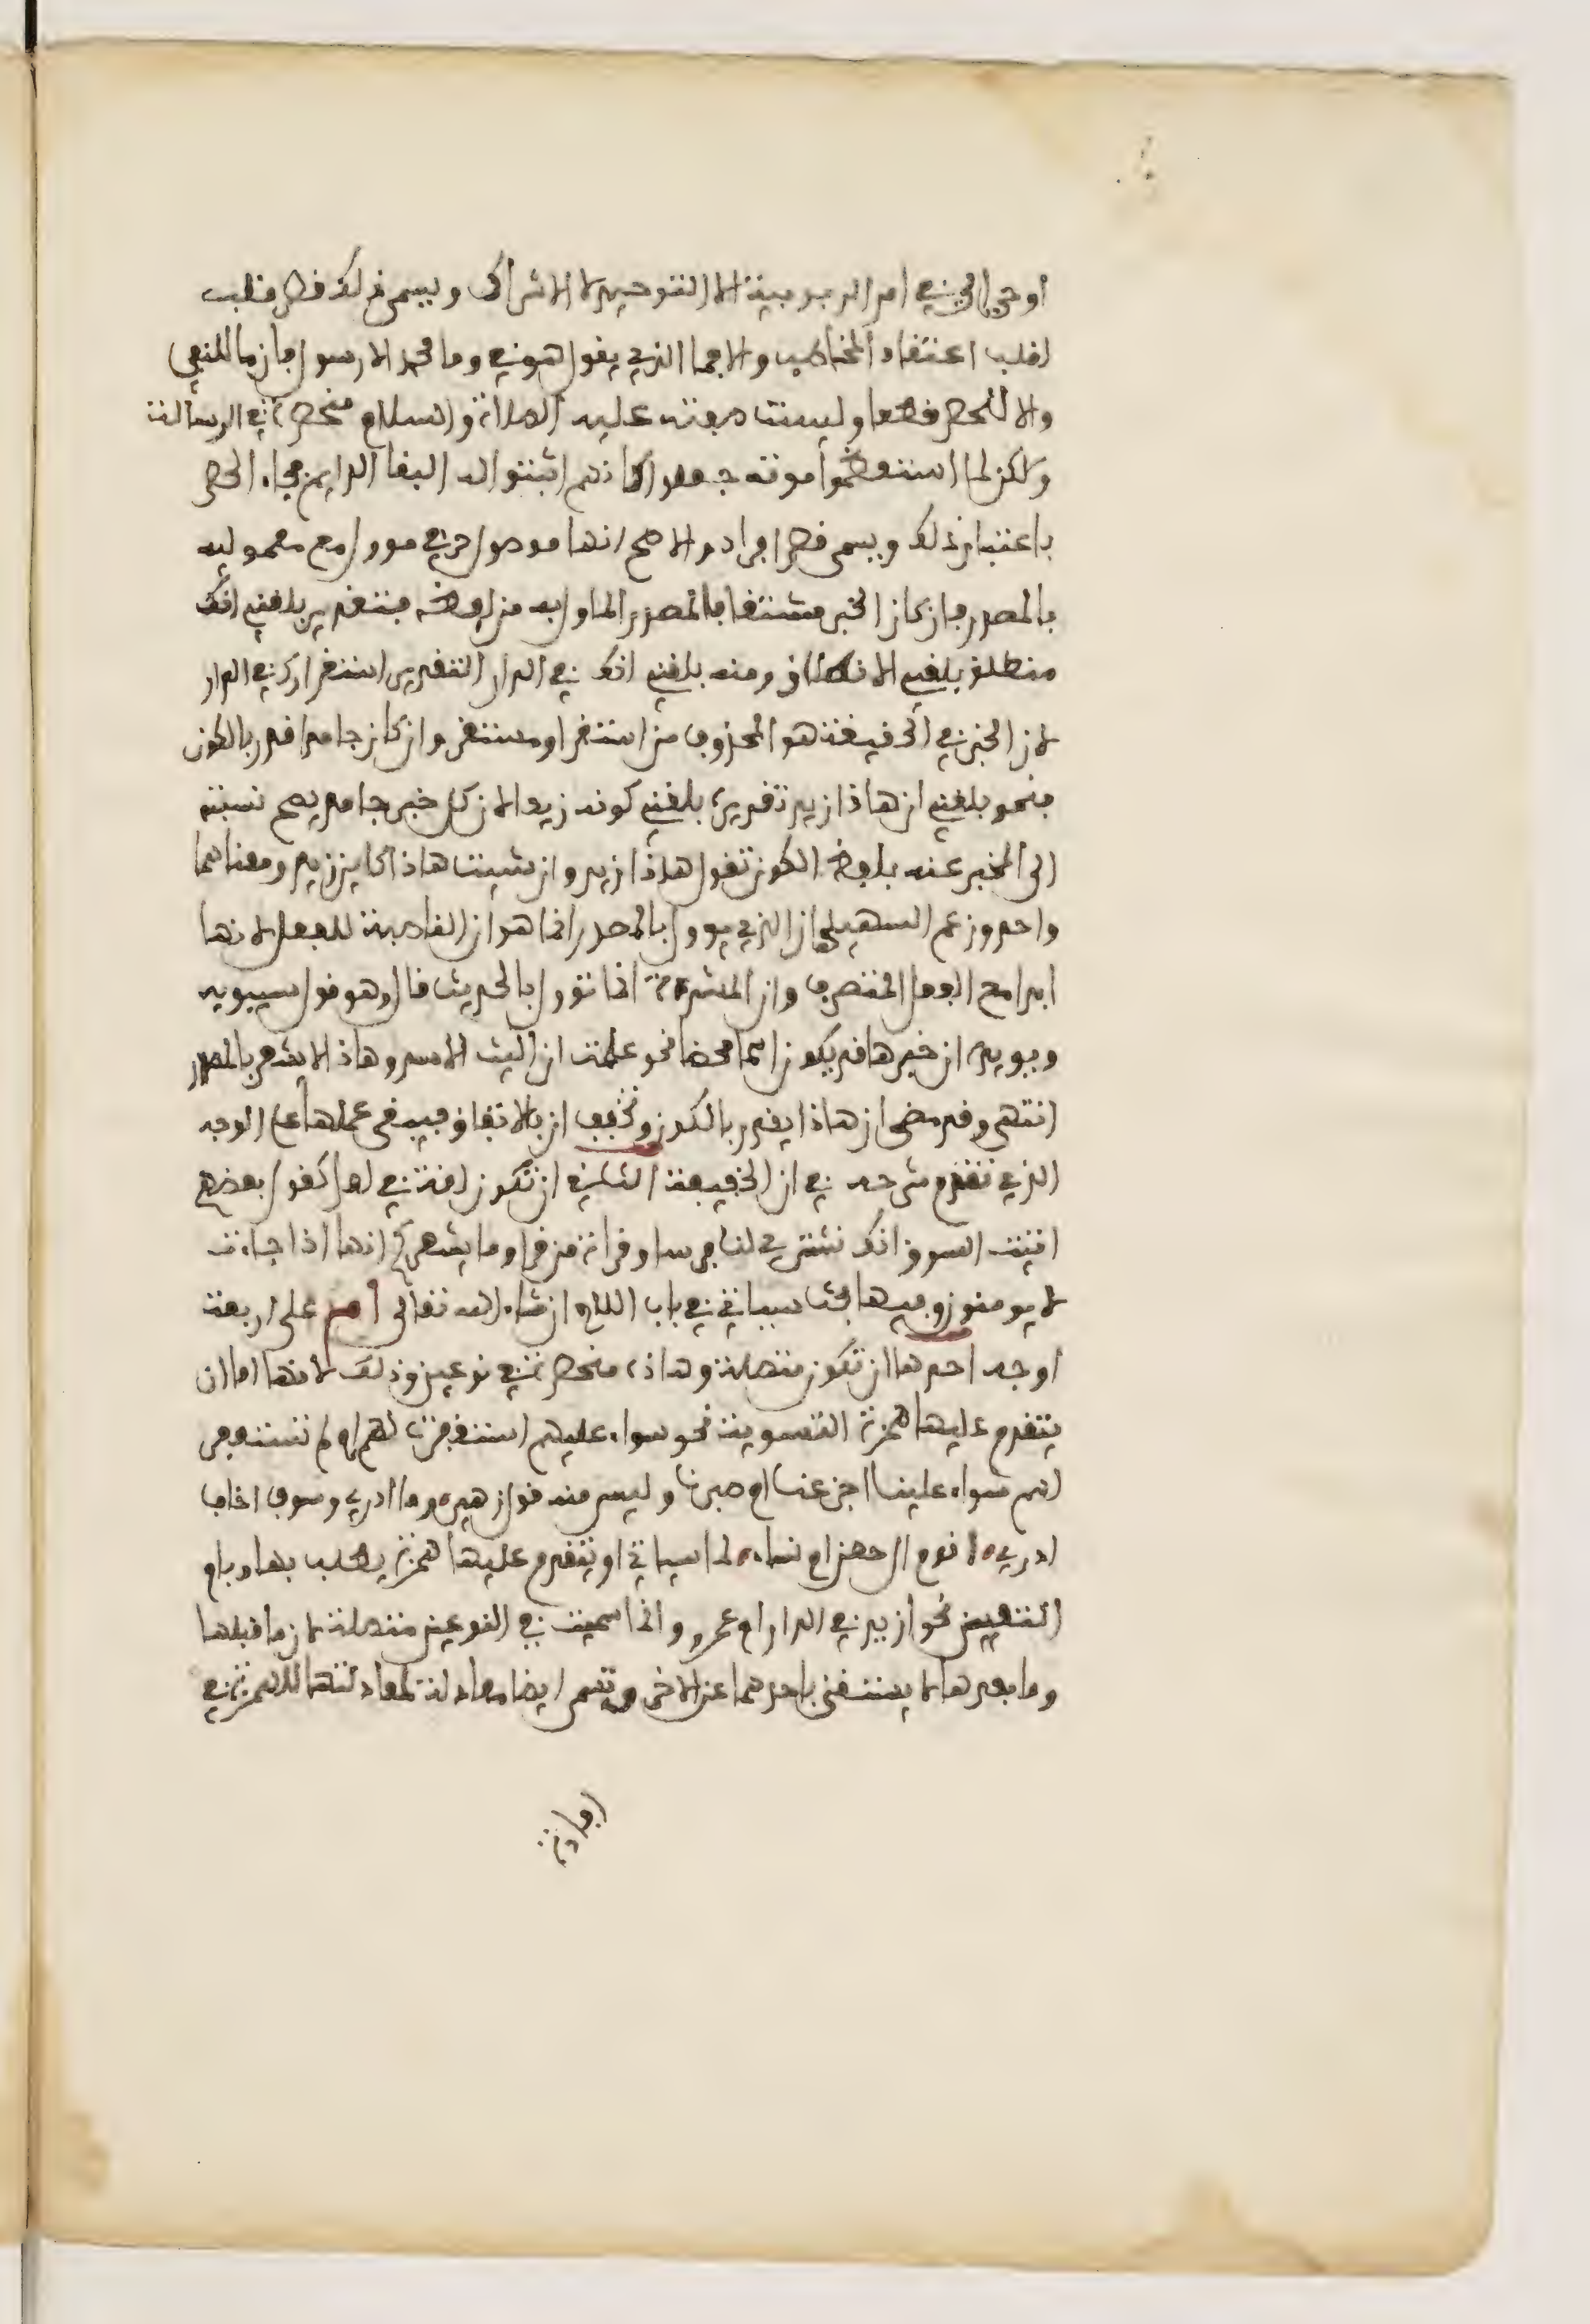 اوحي الي في امر الربوبية الا التوحيد لا الاشراك ويسمى ذلك قصر قلب
لقلب اعتقاد المخاطب والا فما الذي يقول هو في وما محمد الا رسول فان ما للنفي
والا للحصر قطعا وليست صفته عليه الصلاة والسلام منحصرة في الرسالة
ولكن لما استعظموا موته جعلوا كانهم اثبتوا له البقا الدايم فجاء الحصر
باعتبار ذلك ويسمى قصر افراد والاصح انها موصول حرفي موول مع معموليه
بالمصدر فان كان الخبر مشتقا فالمصدر الماول به من لفظه فتقدير بلغني انك
منطلق بلغني الانطلاق ومنه بلغني انك في الدار التقدير استقرارك في الدار
لان الخبر في الحقيقة هو المحذوف من استقر او مستقر وان كان جامدا قدر بالكون
فنحو بلغني ان هاذا زيد تقديره بلغني كونه زيدا لان كل خبر جامد يصح نسبته
الى المخبر عنه بلفظ الكون تقول هاذا زيد وان شيت هاذا كاين زيد ومعناهما
واحد وزعم السهيلي ان الذي يوول بالمصدر انما هو ان الناصبة للفعل لانها
ابدا مع الفعل المتصرف وان المشددة انما توول بالحديث قال وهو قول سيبويه
ويويده ان خبرها قد يكون اسما محضا نحو علمت ان اليث الاسد وهاذا لا يشعر بالمصدر
انتهى وقد مضى ان هاذا يقدر بالكون وتخفف ان بالاتفاق فيبقى عملها على الوجه
الذي تقدم شرحه في ان الخفيفة الثاني ان تكون لغة في لعل كقول بعضهم
ائيت السوق انك تشتري لنا فرسا وقراة من قرا وما يشعركم انها اذا جاءت
لا يومنون وفيها بحث سياتي في باب اللام ان شاء الله تعالى أم على اربعة
اوجه احدها ان تكون متصلة وهاذه منحصرة في نوعين وذلك لانها اما ان
يتقدم عليها همزة التسوية نحو سواء عليهم استغفرت لهم ام لم تستغفر
لهم سواء علينا اجزعنا ام صبرنا وليس منه قول زهير ه وما ادري وسوف اخال
ادري ه اقوم ال حصن ام نساء ه لما سياتي او يتقدم عليها همزة يطلب بها وبام
التعيين نحو ازيد في الدار ام عمرو وانما سميت في النوعين متصلة لان ما قبلها
وما بعدها لا يستغنى باحدهما عن الاخر وتسمى ايضا معادلة لمعادلتها للهمزة في
افادة